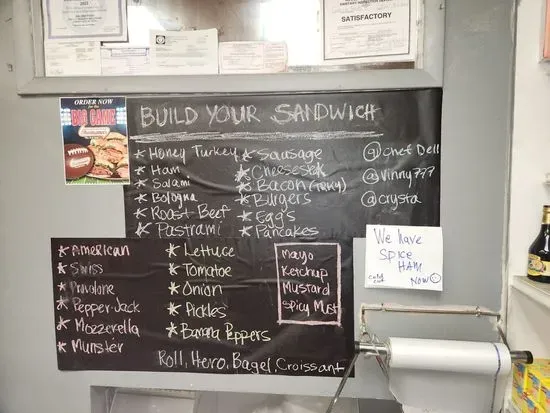 2021
SATISFACTORY
ORDER NOW
for the
BIG GAME
BUILD YOUR SANDWICH
* Honey Turkey
* Ham
* Salami
* Bologna
* Roast Beef
* Pastrami
* Sausage
* Cheesesteak
* Bacon (Turkey)
* Burgers
* Egg's
* Pancakes
@Chef Dell
@Vinny777
@crysta
* American
* Swiss
* Provolone
* Pepper-Jack
* Mozzerella
* Munster
* Lettuce
* Tomatoe
* Onion
* Pickles
* Banana Peppers
Mayo
Ketchup
Mustard
Spicy Must
Roll, Hero, Bagel, Croissant
We have
SPICE
HAM
cold cut
NOW